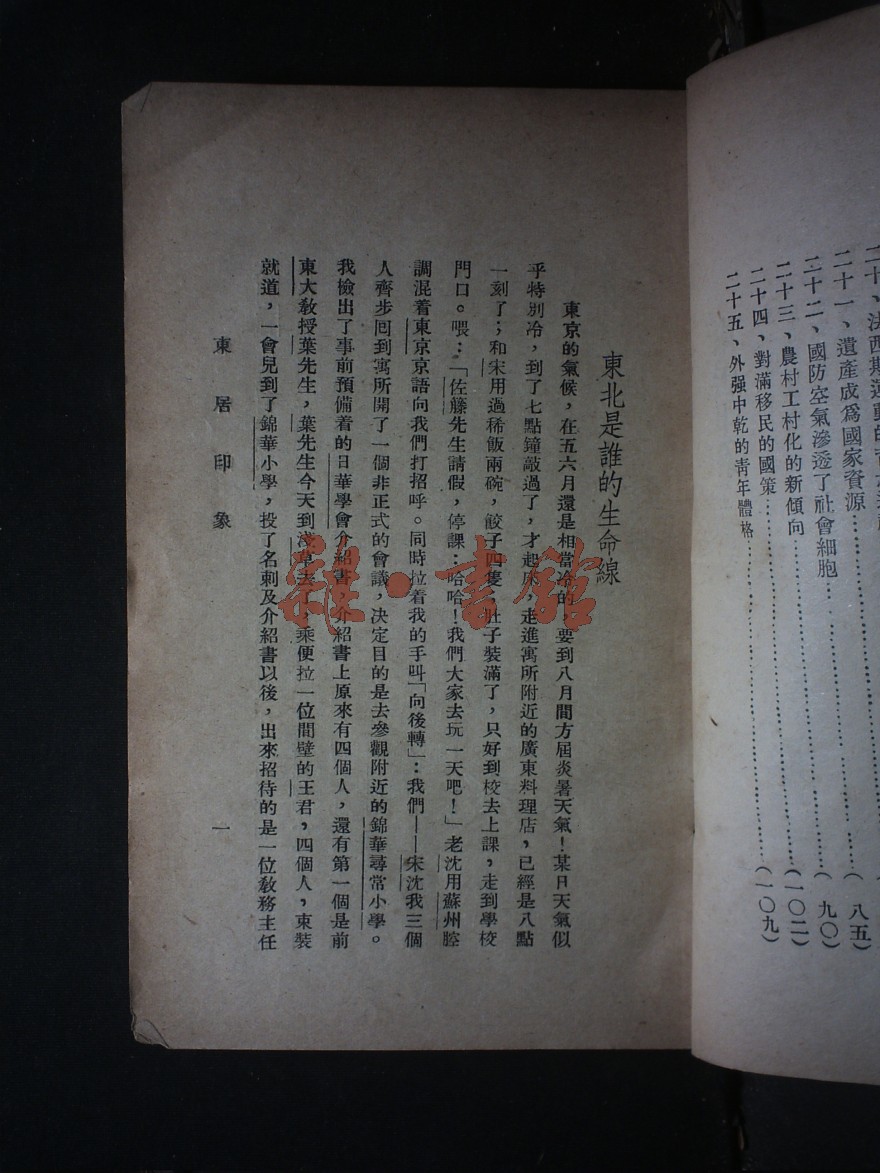 二十、法西斯運動的
二十一、遺產成爲國家資源……………(八五)
二十二、國防空氣滲透了社會細胞……………(九〇)
二十三、農村工村化的新傾向……………(一〇二)
二十四、對滿移民的國策……………
二十五、外强中乾的靑年體格……………(一〇九)
東北是誰的生命線
東京的氣候，在五六月還是相當冷的，要到八月間方屆炎暑天氣！某日天氣似
乎特別冷，到了七點鐘敲過了，才起床，走進寓所附近的廣東料理店，已經是八點
一刻了；和宋用過稀飯兩碗，餃子四隻，肚子裝滿了，只好到校去上課，走到學校
門口。喂：「佐藤先生請假，停課：哈哈！我們大家去玩一天吧！」老沈用蘇州腔
調混着東京京語向我們打招呼。同時拉着我的手叫「向後轉」：我們——宋沈我三個
人齊步回到寓所開了一個非正式的會議，決定目的是去參觀附近的錦華尋常小學。
我檢出了事前預備着的日華學會介紹書，介紹書上原來有四個人，還有第一個是前
東大敎授葉先生，葉先生今天到淺草去了，乘便拉一位間壁的王君，四個人，束裝
就道，一會兒到了錦華小學，投了名刺及介紹書以後，出來招待的是一位敎務主任
東居印象
一
雜·書館